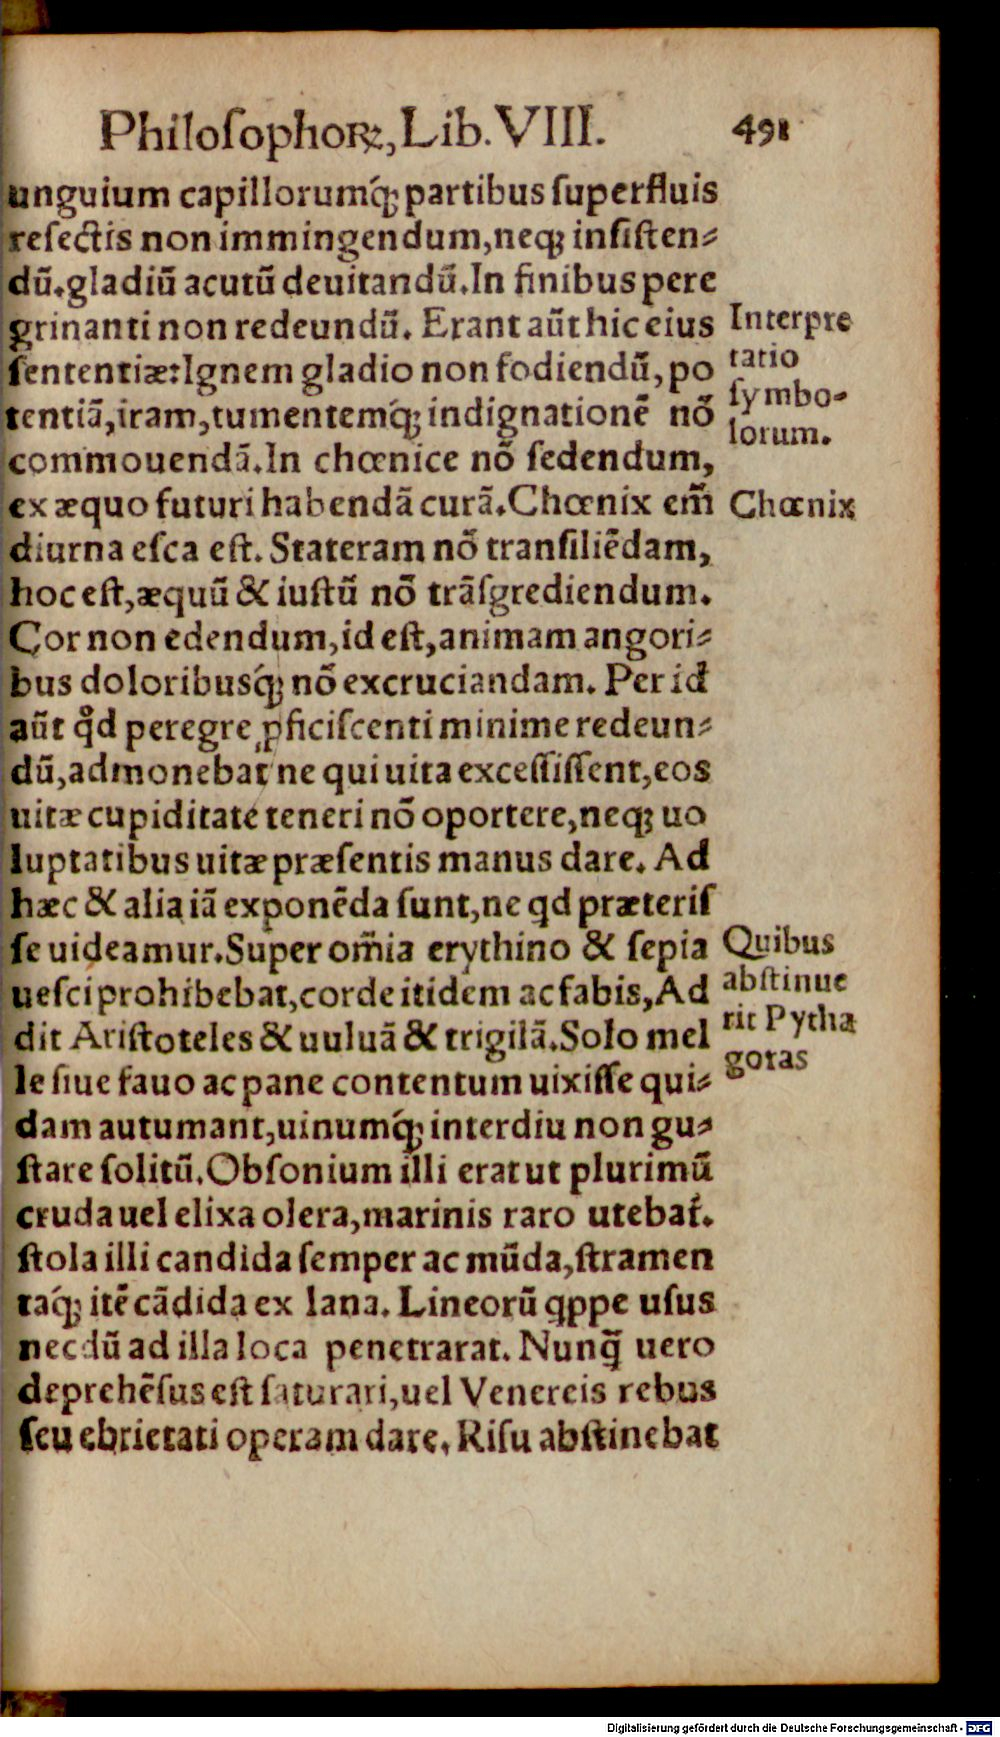 Philoſophoꝝ, Lib. VIII. 491
unguium capillorumq́; partibus ſuperfluis
reſectis non immingendum, neq; inſiſten⸗
dũ. gladiũ acutũ deuitandũ. In finibus pere
grinanti non redeundũ. Erant aũt hic eius
ſententiæ: Ignem gladio non fodiendũ, po
tentiã, iram, tumentemq́; indignationẽ nõ
commouendã. In chœnice nõ ſedendum,
ex æquo futuri habendã curã. Chœnix em̃
diurna eſca eſt. Stateram nõ tranſiliẽdam,
hoc eſt, æquũ & iuſtũ nõ trãſgrediendum.
Cor non edendum, id eſt, animam angori⸗
bus doloribusq́; nõ excruciandam. Per id
aũt qđ peregre ꝓficiſcenti minime redeun⸗
dũ, admonebat ne qui uita exceſſiſſent, eos
uitæ cupiditate teneri nõ oportere, neq; uo
luptatibus uitæ præſentis manus dare. Ad
hæc & alia iã exponẽda ſunt, ne qd præteriſ
ſe uideamur. Super om̃ia erythino & ſepia
ueſci prohibebat, corde itidem ac fabis, Ad
dit Ariſtoteles & uuluã & trigilã. Solo mel
le ſiue fauo ac pane contentum uixiſſe qui⸗
dam autumant, uinumq́; interdiu non gu⸗
ſtare ſolitũ. Obſonium illi erat ut plurimũ
cruda uel elixa olera, marinis raro utebat᷑.
ſtola illi candida ſemper ac mũda, ſtramen
taq́; itẽ cãdida ex lana. Lineorũ qppe uſus
necdũ ad illa loca penetrarat. Nunq̃ uero
deprehẽſus eſt ſaturari, uel Venereis rebus
ſeu ebrietati operam dare. Riſu abſtinebat
Interpre
tatio
ſymbo⸗
lorum.
Chœnix
Quibus
abſtinue
rit Pytha
goras
Digitalisierung gefördert durch die Deutsche Forschungsgemeinschaft - DFG